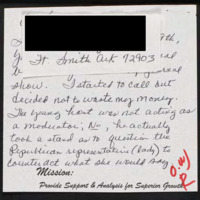 Ft. Smith Ark 72903
show. I started to call but
decided not to waste my money.
The young host was not acting
as a moderator; No, he actually
took a stand as to question the
Republican representative (lady) to
counteract what she would say.
Mission:
Provide Support & Analysis for Superior Growth